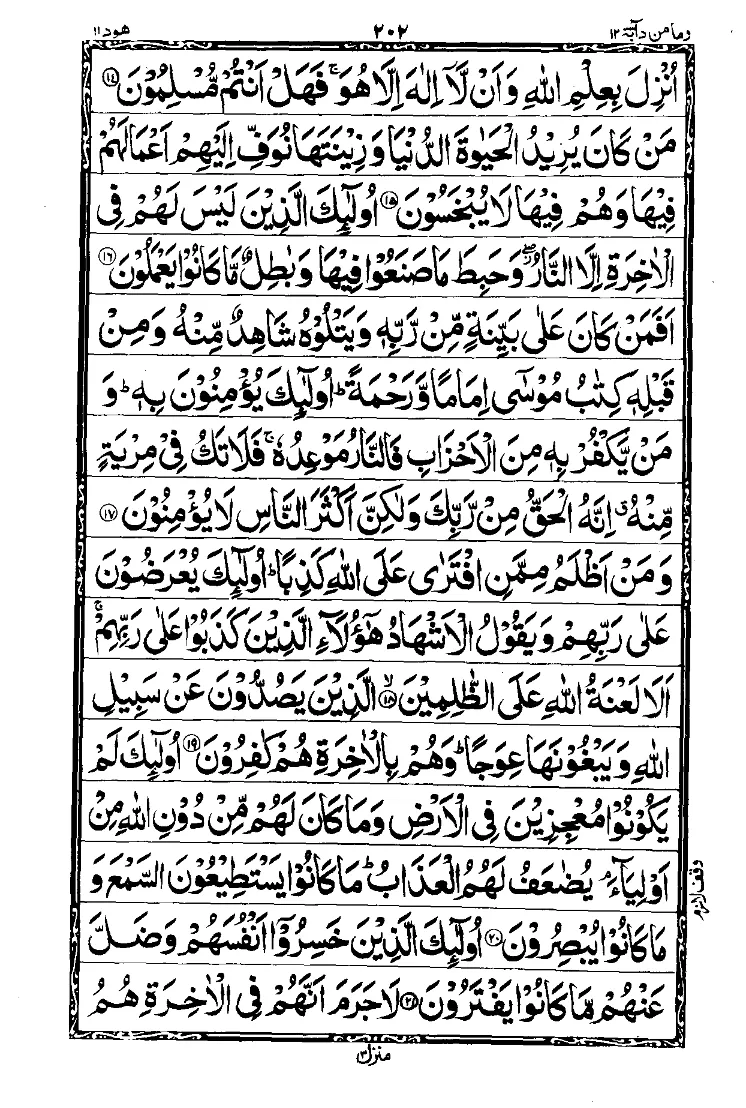 وما من دآبة ١٢
٢٠٢
هود ١١
اُنْزِلَ بِعِلْمِ اللّٰهِ وَاَنْ لَّاۤ اِلٰهَ اِلَّا هُوَ ۚ فَهَلْ اَنْتُمْ مُّسْلِمُوْنَ ⑭
مَنْ كَانَ يُرِيْدُ الْحَيٰوةَ الدُّنْيَا وَزِيْنَتَهَا نُوَفِّ اِلَيْهِمْ اَعْمَالَهُمْ
فِيْهَا وَهُمْ فِيْهَا لَا يُبْخَسُوْنَ ⑮ اُولٰٓئِكَ الَّذِيْنَ لَيْسَ لَهُمْ فِى
الْاٰخِرَةِ اِلَّا النَّارُ ۖ وَحَبِطَ مَا صَنَعُوْا فِيْهَا وَبٰطِلٌ مَّا كَانُوْا يَعْمَلُوْنَ ⑯
اَفَمَنْ كَانَ عَلٰى بَيِّنَةٍ مِّنْ رَّبِّهٖ وَيَتْلُوْهُ شَاهِدٌ مِّنْهُ وَمِنْ
قَبْلِهٖ كِتٰبُ مُوْسٰٓى اِمَامًا وَّرَحْمَةً ؕ اُولٰٓئِكَ يُؤْمِنُوْنَ بِهٖ ؕ وَ
مَنْ يَّكْفُرْ بِهٖ مِنَ الْاَحْزَابِ فَالنَّارُ مَوْعِدُهٗ ۚ فَلَا تَكُ فِىْ مِرْيَةٍ
مِّنْهُ ۗ اِنَّهُ الْحَقُّ مِنْ رَّبِّكَ وَلٰكِنَّ اَكْثَرَ النَّاسِ لَا يُؤْمِنُوْنَ ⑰
وَمَنْ اَظْلَمُ مِمَّنِ افْتَرٰى عَلَى اللّٰهِ كَذِبًا ؕ اُولٰٓئِكَ يُعْرَضُوْنَ
عَلٰى رَبِّهِمْ وَيَقُوْلُ الْاَشْهَادُ هٰٓؤُلَآءِ الَّذِيْنَ كَذَبُوْا عَلٰى رَبِّهِمْ ۚ
اَلَا لَعْنَةُ اللّٰهِ عَلَى الظّٰلِمِيْنَ ⑱ۙ الَّذِيْنَ يَصُدُّوْنَ عَنْ سَبِيْلِ
اللّٰهِ وَيَبْغُوْنَهَا عِوَجًا ؕ وَهُمْ بِالْاٰخِرَةِ هُمْ كٰفِرُوْنَ ⑲ اُولٰٓئِكَ لَمْ
يَكُوْنُوْا مُعْجِزِيْنَ فِى الْاَرْضِ وَمَا كَانَ لَهُمْ مِّنْ دُوْنِ اللّٰهِ مِنْ
اَوْلِيَآءَ ۘ يُضٰعَفُ لَهُمُ الْعَذَابُ ؕ مَا كَانُوْا يَسْتَطِيْعُوْنَ السَّمْعَ وَ
وقف لازم
مَا كَانُوْا يُبْصِرُوْنَ ⑳ اُولٰٓئِكَ الَّذِيْنَ خَسِرُوْٓا اَنْفُسَهُمْ وَضَلَّ
عَنْهُمْ مَّا كَانُوْا يَفْتَرُوْنَ ㉑ لَا جَرَمَ اَنَّهُمْ فِى الْاٰخِرَةِ هُمُ
منزل ٣